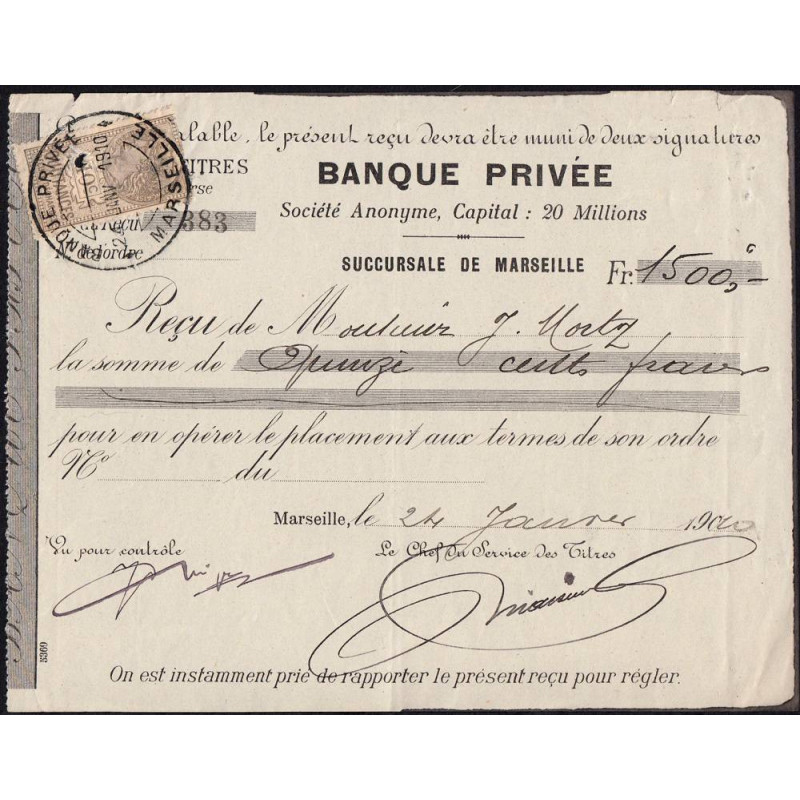 alable, le présent reçu devra être muni de deux signatures
TITRES
BANQUE PRIVÉE
Société Anonyme, Capital : 20 Millions
du Reçu 383
N° de l'ordre
SUCCURSALE DE MARSEILLE Fr. 1500,-
QUE PRIVÉE
24 JANV 1910
MARSEILLE
Reçu de Monsieur J. Mortz
la somme de Quinze cents francs
pour en opérer le placement aux termes de son ordre
N° du
Marseille, le 24 Janvier 1910
Vu pour contrôle Le Chef du Service des Titres
3369
On est instamment prié de rapporter le présent reçu pour régler.